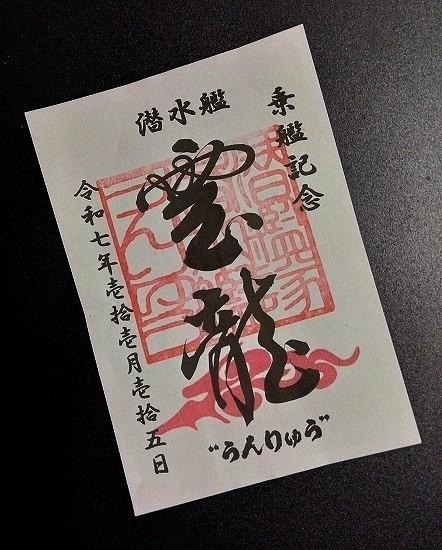 乗艦記念
潜水艦
雲龍
"うんりゅう"
令和七年壱拾壱月壱拾五日